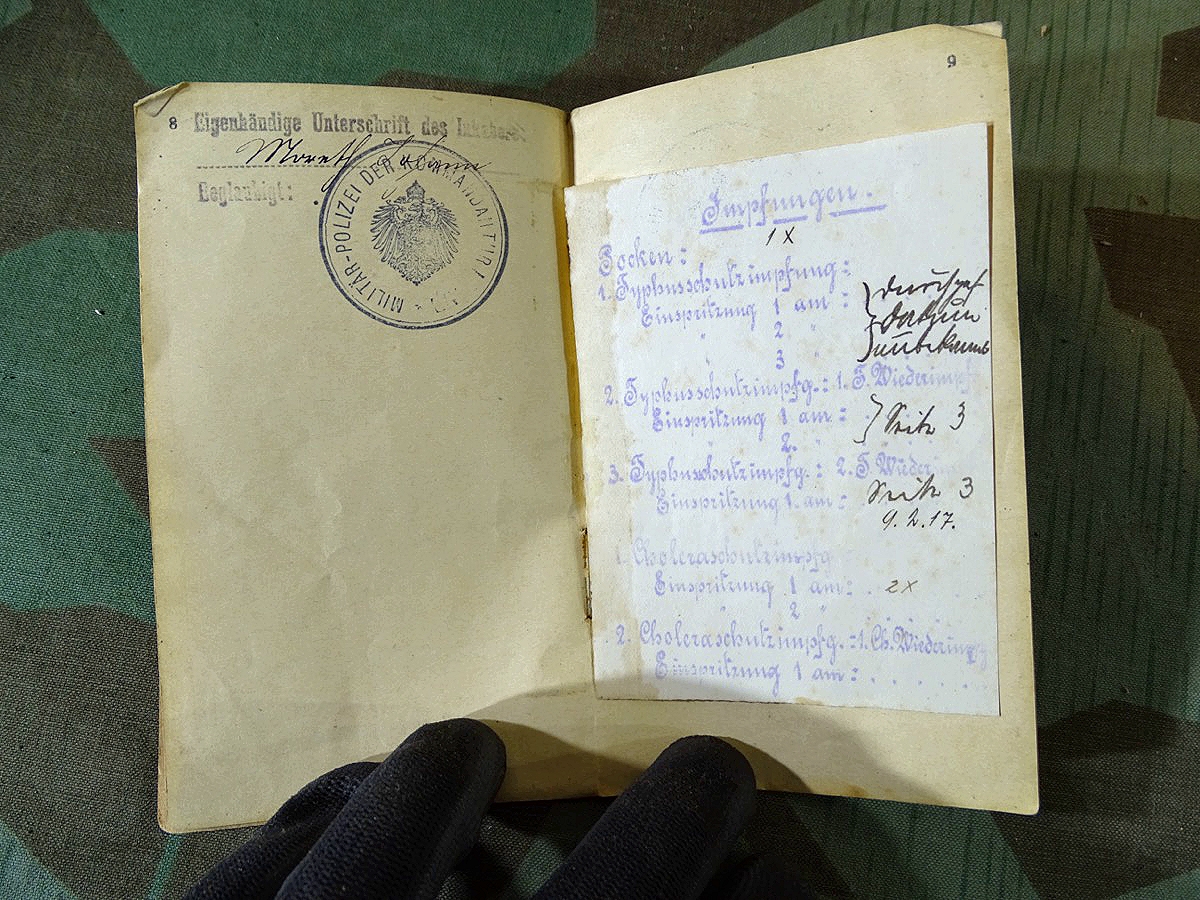 8
Eigenhändige Unterschrift des Inhabers:
Moreth Johann
Beglaubigt:
MILITÄR-POLIZEI DER KOMMANDANTUR
9
Impfungen.
1 x
Pocken:
1. Typhusschutzimpfung:
Einspritzung 1 am: } durchgef
" 2 " } Datum
" 3 " } unbekannt
2. Typhusschutzimpfg.: 1. T. Wiederimpf
Einspritzung 1 am: } Seite 3
" 2. "
3. Typhusschutzimpfg.: 2. T. Wieder
Einspritzung 1 am: Seite 3
9.2.17.
1. Choleraschutzimpfg
Einspritzung 1 am: . 2x
" 2 "
2. Choleraschutzimpfg. = 1. Ch. Wiederimpfg
Einspritzung 1 am: . . . . . .